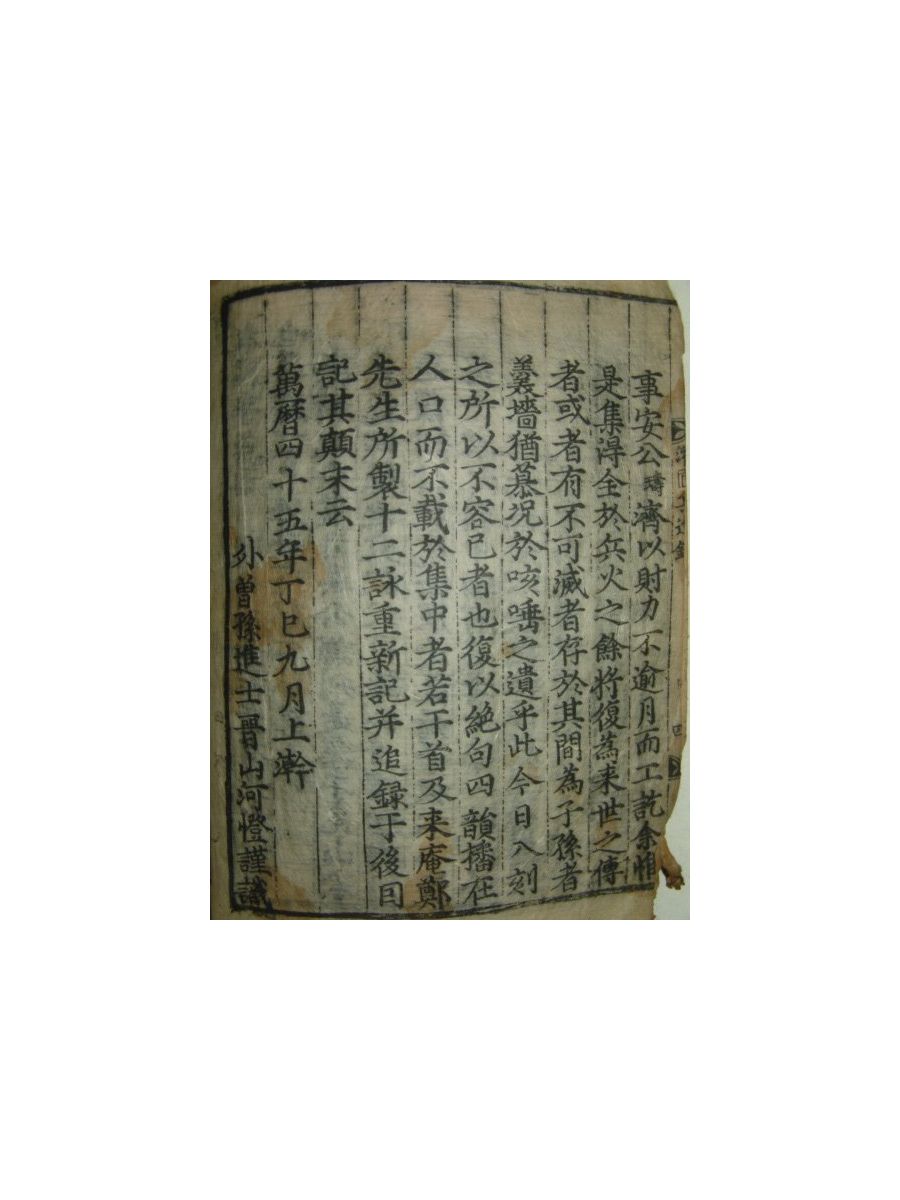 事安公璹濟以財力不逾月而工訖余惟
是集得全於兵火之餘將復為来世之傳
者或者有不可滅者存於其間為子孫者
羹墻猶慕况於咳唾之遺乎此今日入刻
之所以不容已者也復以絶句四韻播在
人口而不載於集中者若干首及来庵鄭
先生所製十二詠重新記并追録于後曰
記其顛末云
萬曆四十五年丁巳九月上澣
外曽孫進士晋山河憕謹識